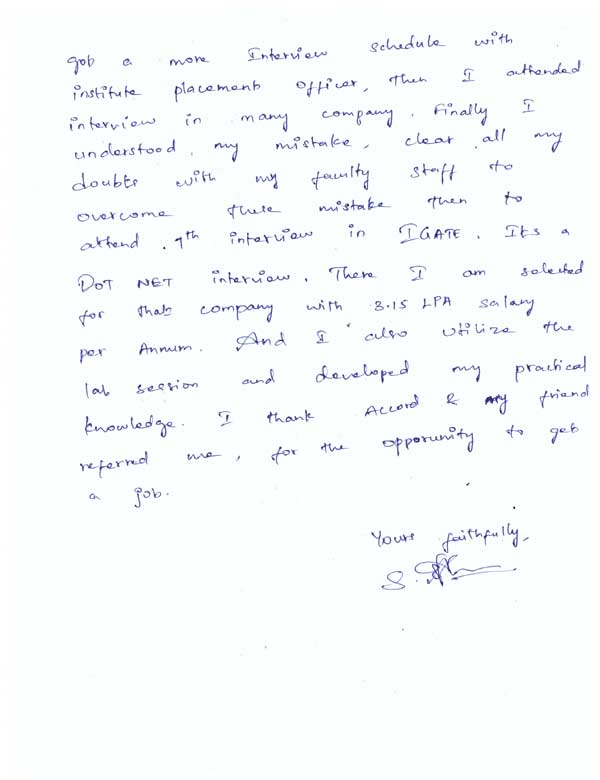 gob a more Interview schedule with
institute placement officer, then I attended
interview in many company. Finally I
understood, my mistake, clear all my
doubts with my faculty staff to
overcome these mistake then to
attend 7th interview in IGATE. Its a
DOT NET interview. There I am selected
for that company with 3.15 LPA salary
per Annum. And I also utilize the
lab session and developed my practical
knowledge. I thank Accord & my friend
referred me, for the opporunity to geb
a job.
Yours faithfully,
S.